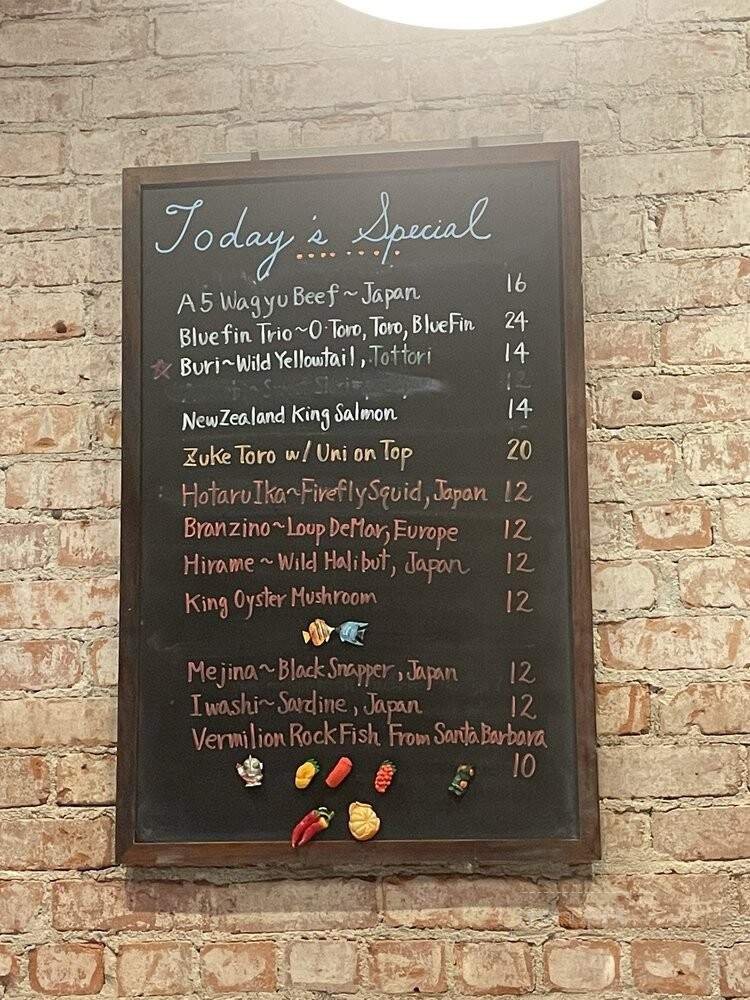 Today's Special
A5 Wagyu Beef ~ Japan 16
Bluefin Trio ~ O·Toro, Toro, BlueFin 24
Buri ~ Wild Yellowtail, Tottori 14
12
New Zealand King Salmon 14
Zuke Toro w/ Uni on Top 20
Hotaru Ika ~ Firefly Squid, Japan 12
Branzino ~ Loup De Mar, Europe 12
Hirame ~ Wild Halibut, Japan 12
King Oyster Mushroom 12
Mejina ~ Black Snapper, Japan 12
Iwashi ~ Sardine, Japan 12
Vermilion Rock Fish From Santa Barbara
10